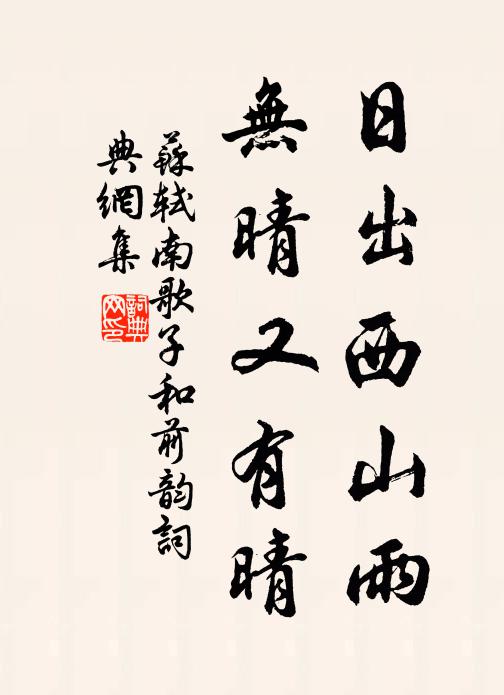 日出西山雨
無晴又有晴
蘇軾南歌子和前韵詞
典網集
詞典
网印